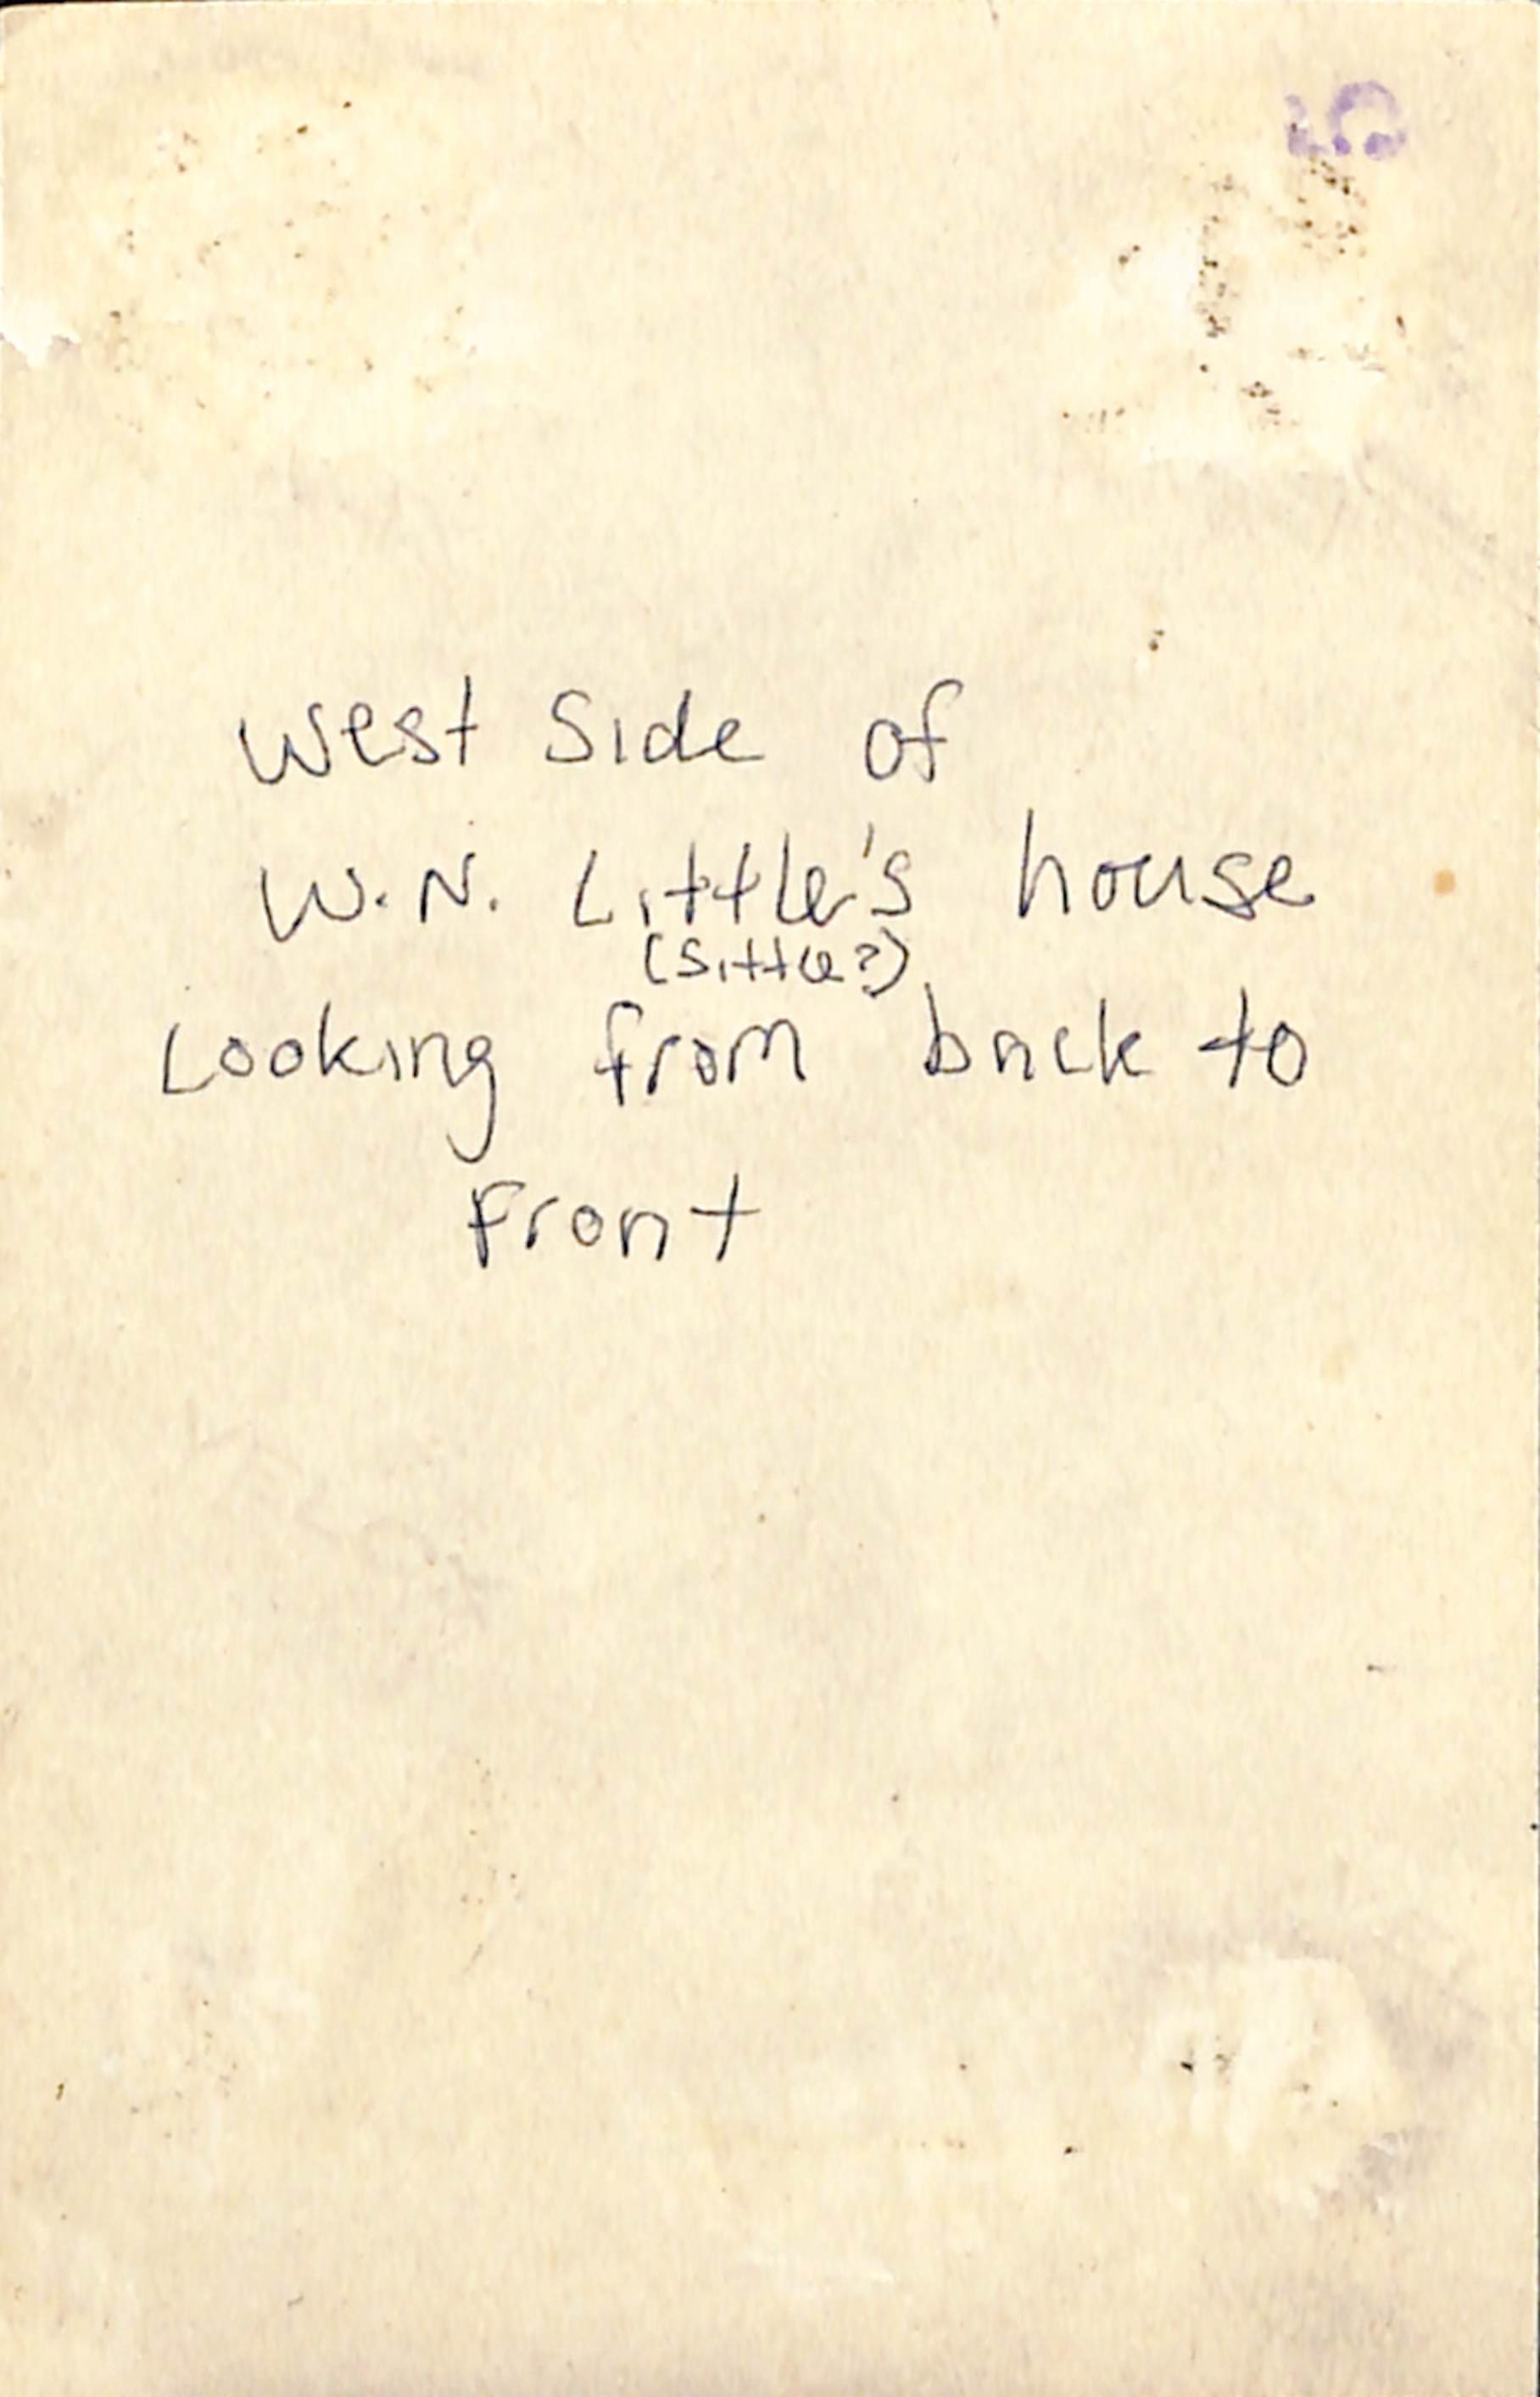 West Side of
W. N. Little's house
(Sittle?)
Looking from back to
Front